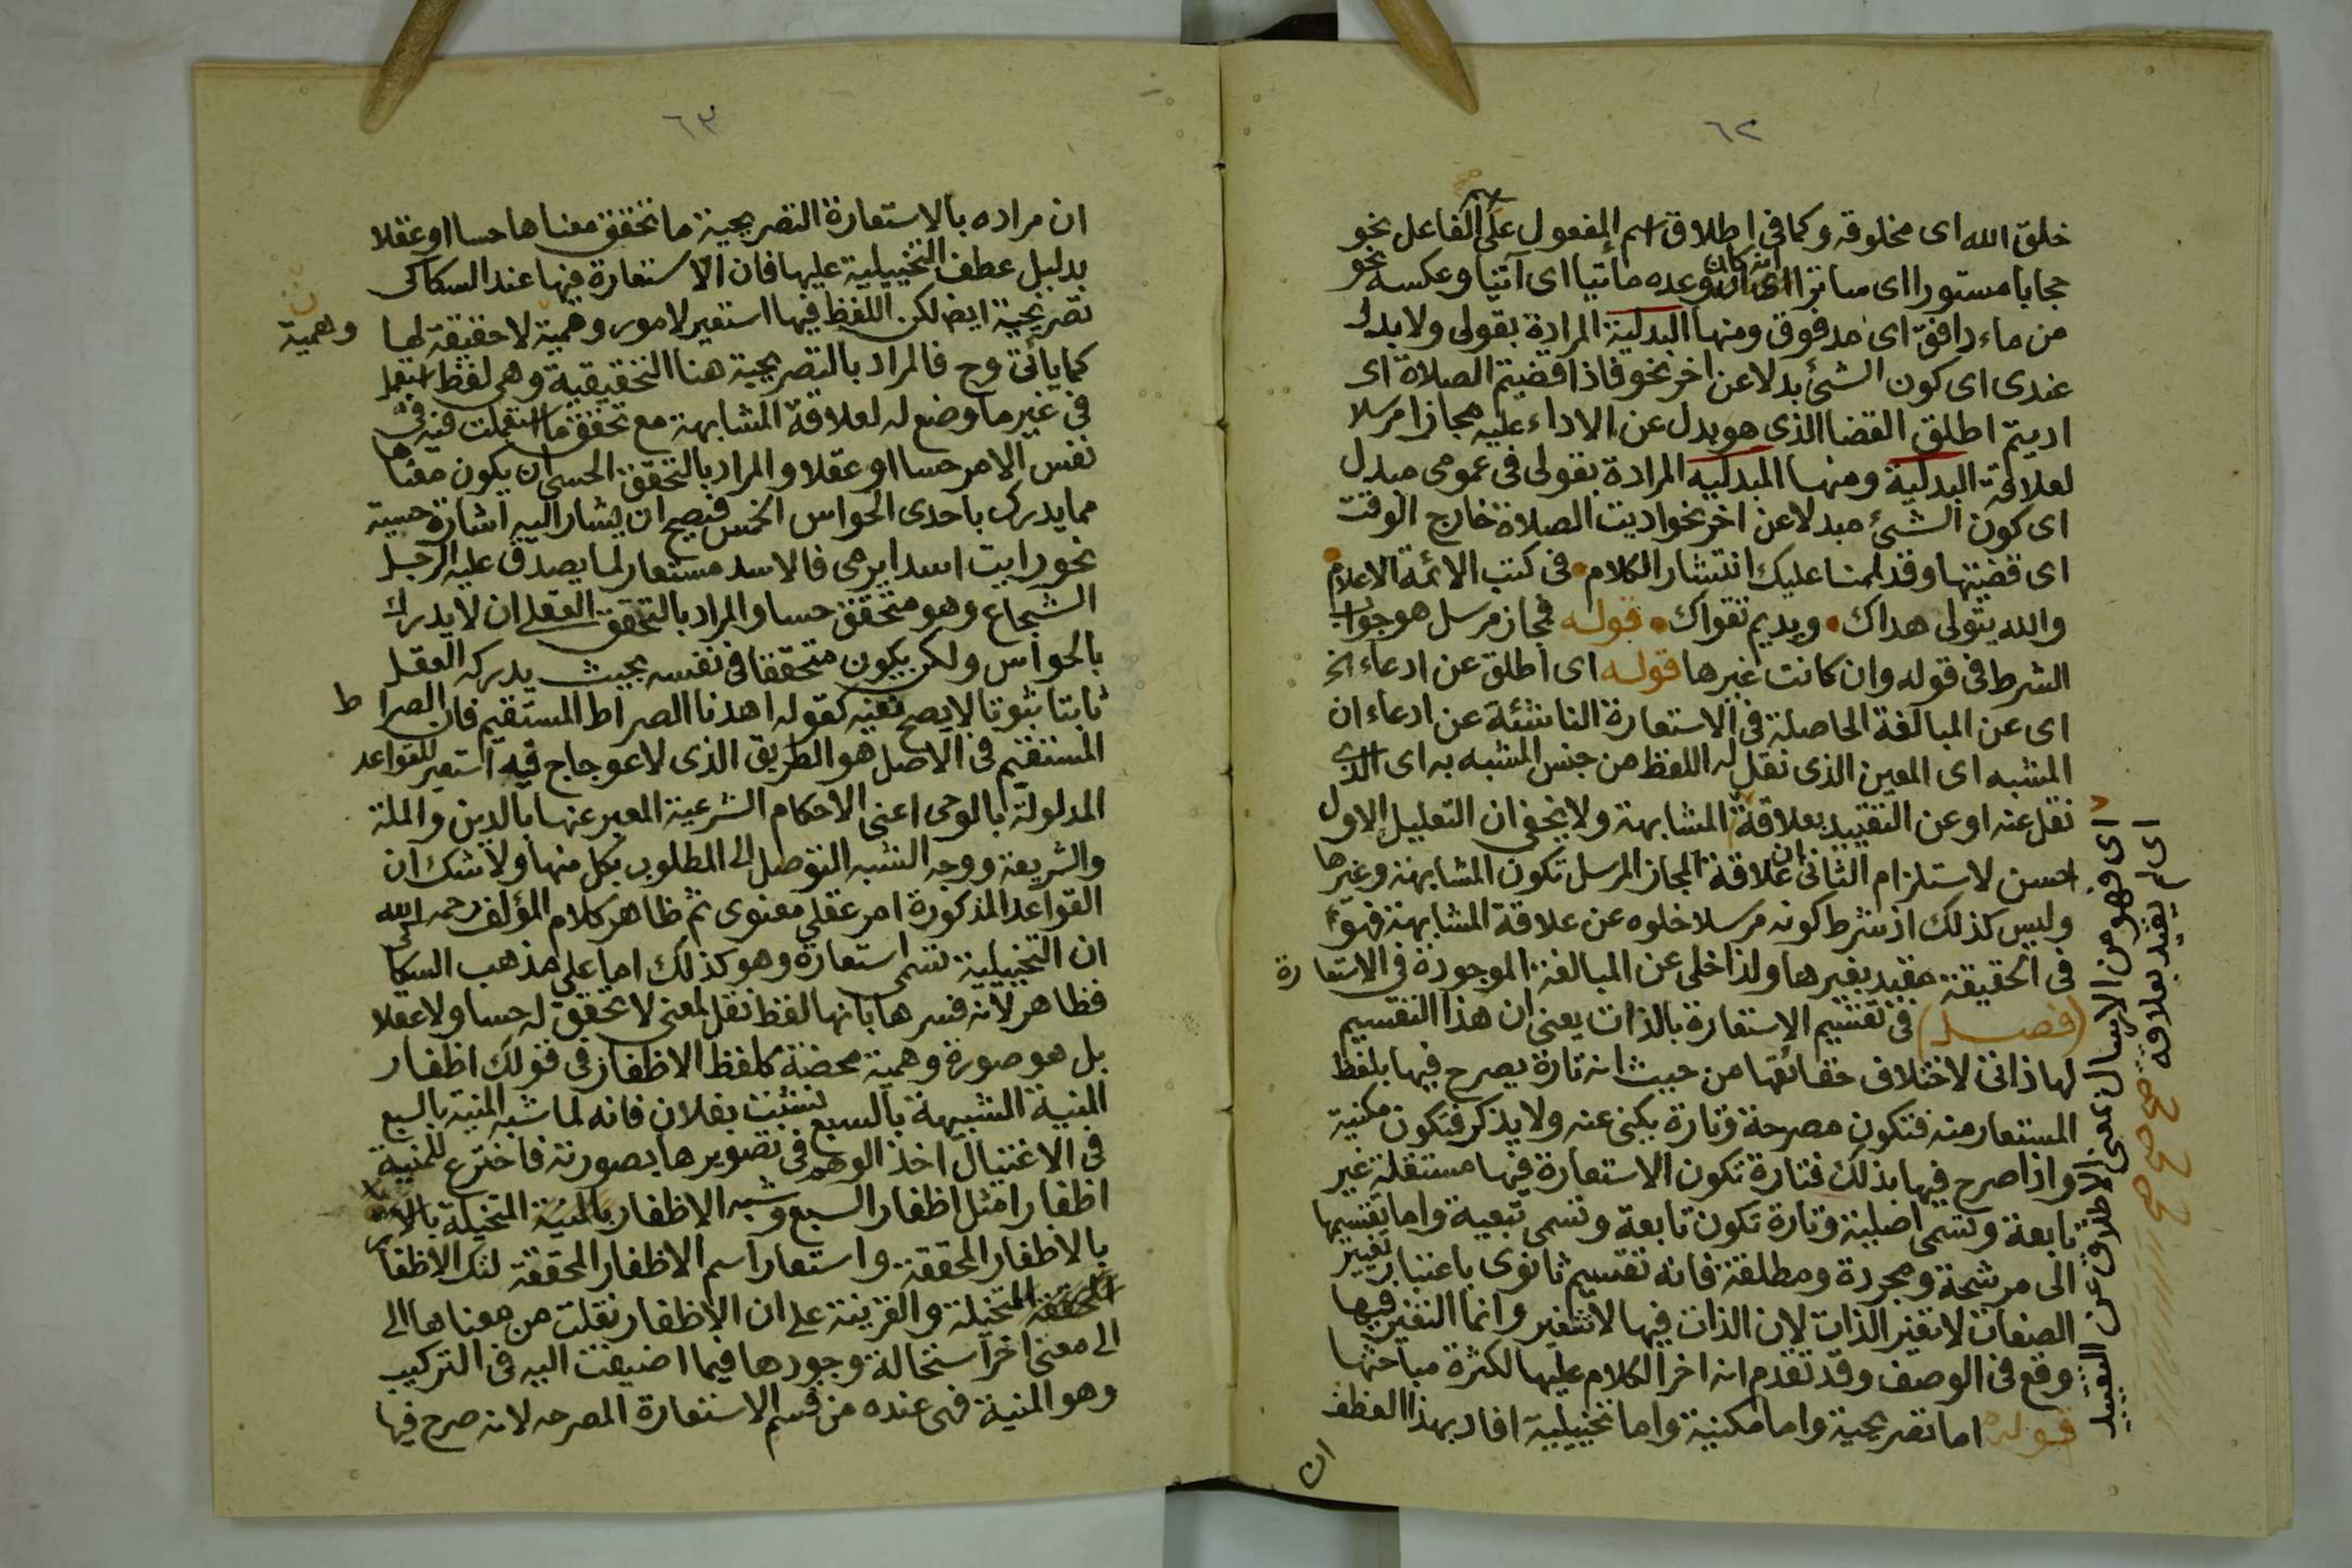 ٦٢
خلق الله اى مخلوقه وكما فى اطلاق اسم المفعول على الفاعل نحو
حجابا مستورا اى ساترا انه كان وعده مأتيا اى آتيا وعكسه نحو
من ماء دافق اى مدفوق ومنها البدلية المرادة بقولى ولا بدل
عندى اى كون الشئ بدلا عن اخر نحو فاذا قضيتم الصلاة اى
اديتم اطلق القضا الذى هو بدل عن الاداء عليه مجازا مرسلا
لعلاقة البدلية ومنها المبدليه المرادة بقولى فى عمومى مبدل
اى كون الشئ مبدلا عن اخر نحو اديت الصلاة خارج الوقت
اى قضيتها وقد لمنا عليك انتشار الكلام فى كتب الائمة الاعلام
والله يتولى هداك ويديم تقواك قوله فمجاز مرسل هو جواب
الشرط فى قوله وان كانت غيرها قوله اى اطلق عن ادعاء الخ
اى عن المبالغة الحاصلة فى الاستعارة الناشئة عن ادعاء ان
المشبه اى المعين الذى نقل له اللفظ من جنس المشبه به اى الذى
نقل عنه او عن التقييد بعلاقة المشابهة ولا يخفى ان التعليل الاول
احسن لاستلزام الثانى ان علاقة المجاز المرسل تكون المشابهة وغيرها
وليس كذلك اذ شرط كونه مرسلا خلوه عن علاقة المشابهة فهو
فى الحقيقة مقيد بغيرها ولذا خلى عن المبالغة الموجودة فى الاستعارة
(فصل) فى تقسيم الاستعارة بالذات يعنى ان هذا التقسيم
لها ذاتى لاختلاف حقائقها من حيث انه تارة يصرح فيها بلفظ
المستعار منه فتكون مصرحة وتارة يكنى عنه ولا يذكر فتكون مكنية
واذا صرح فيها بذلك فتارة تكون الاستعارة فيها مستقلة غير
تابعة وتسمى اصلية وتارة تكون تابعة وتسمى تبعية واما تقسيمها
الى مرشحة ومجردة ومطلقة فانه تقسيم ثانوى باعتبار تغيير
الصفات لا تغير الذات لان الذات فيها لا تتغير وانما التغير فيها
وقع فى الوصف وقد تقدم انه اخر الكلام عليها لكثرة مباحثها
قوله اما تصريحية واما مكنية واما تخييلية افاد بهذا العطف
ان
اى فهو من الارسال بمعنى الاطلاق عن التقييد
اى لم يقيد بعلاقة صح صح صح
٦٣
ان مراده بالاستعارة التصريحية ما تحقق معناها حسا او عقلا
بدليل عطف التخييلية عليها فان الاستعارة فيها عند السكاكى
تصريحية ايضا لكن اللفظ فيها استعير لامور وهمية لا حقيقة لها
وهمية
كما ياتى وح فالمراد بالتصريحية هنا التحقيقية وهى لفظ استعمل
فى غير ما وضع له لعلاقة المشابهة مع تحقق ما استعملت فيه فى
نفس الامر حسا او عقلا والمراد بالتحقق الحسى ان يكون معناها
مما يدرك باحدى الحواس الخمس فيصح ان يشار اليه اشارة حسية
نحو رايت اسدا يرمى فالاسد مستعار لما يصدق عليه الرجل
الشجاع وهو متحقق حسا والمراد بالتحقق العقلى ان لا يدرك
بالحواس ولكن يكون متحققا فى نفسه بحيث يدركه العقل
ثابتا ثبوتا لا يصح نفيه كقوله اهدنا الصراط المستقيم فان الصراط
المستقيم فى الاصل هو الطريق الذى لا عوجاج فيه استعير للقواعد
المدلولة بالوحى اعنى الاحكام الشرعية المعبر عنها بالدين والملة
والشريعة ووجه الشبه التوصل الى المطلوب بكل منها ولا شك ان
القواعد المذكورة امر عقلى معنوى ثم ظاهر كلام المؤلف رحمه الله
ان التخييلية تسمى استعارة وهو كذلك اما على مذهب السكاكى
فظاهر لانه فسرها بانها لفظ نقل لمعنى لا تحقق له حسا ولا عقلا
بل هو صورة وهمية محضة كلفظ الاظفار فى قولك اظفار
المنية الشبيهة بالسبع نشبت بفلان فانه لما شبه المنية بالسبع
فى الاغتيال اخذ الوهم فى تصويرها بصورته فاخترع للمنية
اظفارا مثل اظفار السبع وشبه الاظفار المتخيلة
بالاظفار المحققة واستعار اسم الاظفار المحققة لتلك الاظفار
المتخيلة والقرينة على ان الاظفار نقلت من معناها الى
الى معنى اخر استحالة وجودها فيما اضيفت اليه فى التركيب
وهو المنية فهى عنده من قسم الاستعارة المصرحه لانه صرح فيها